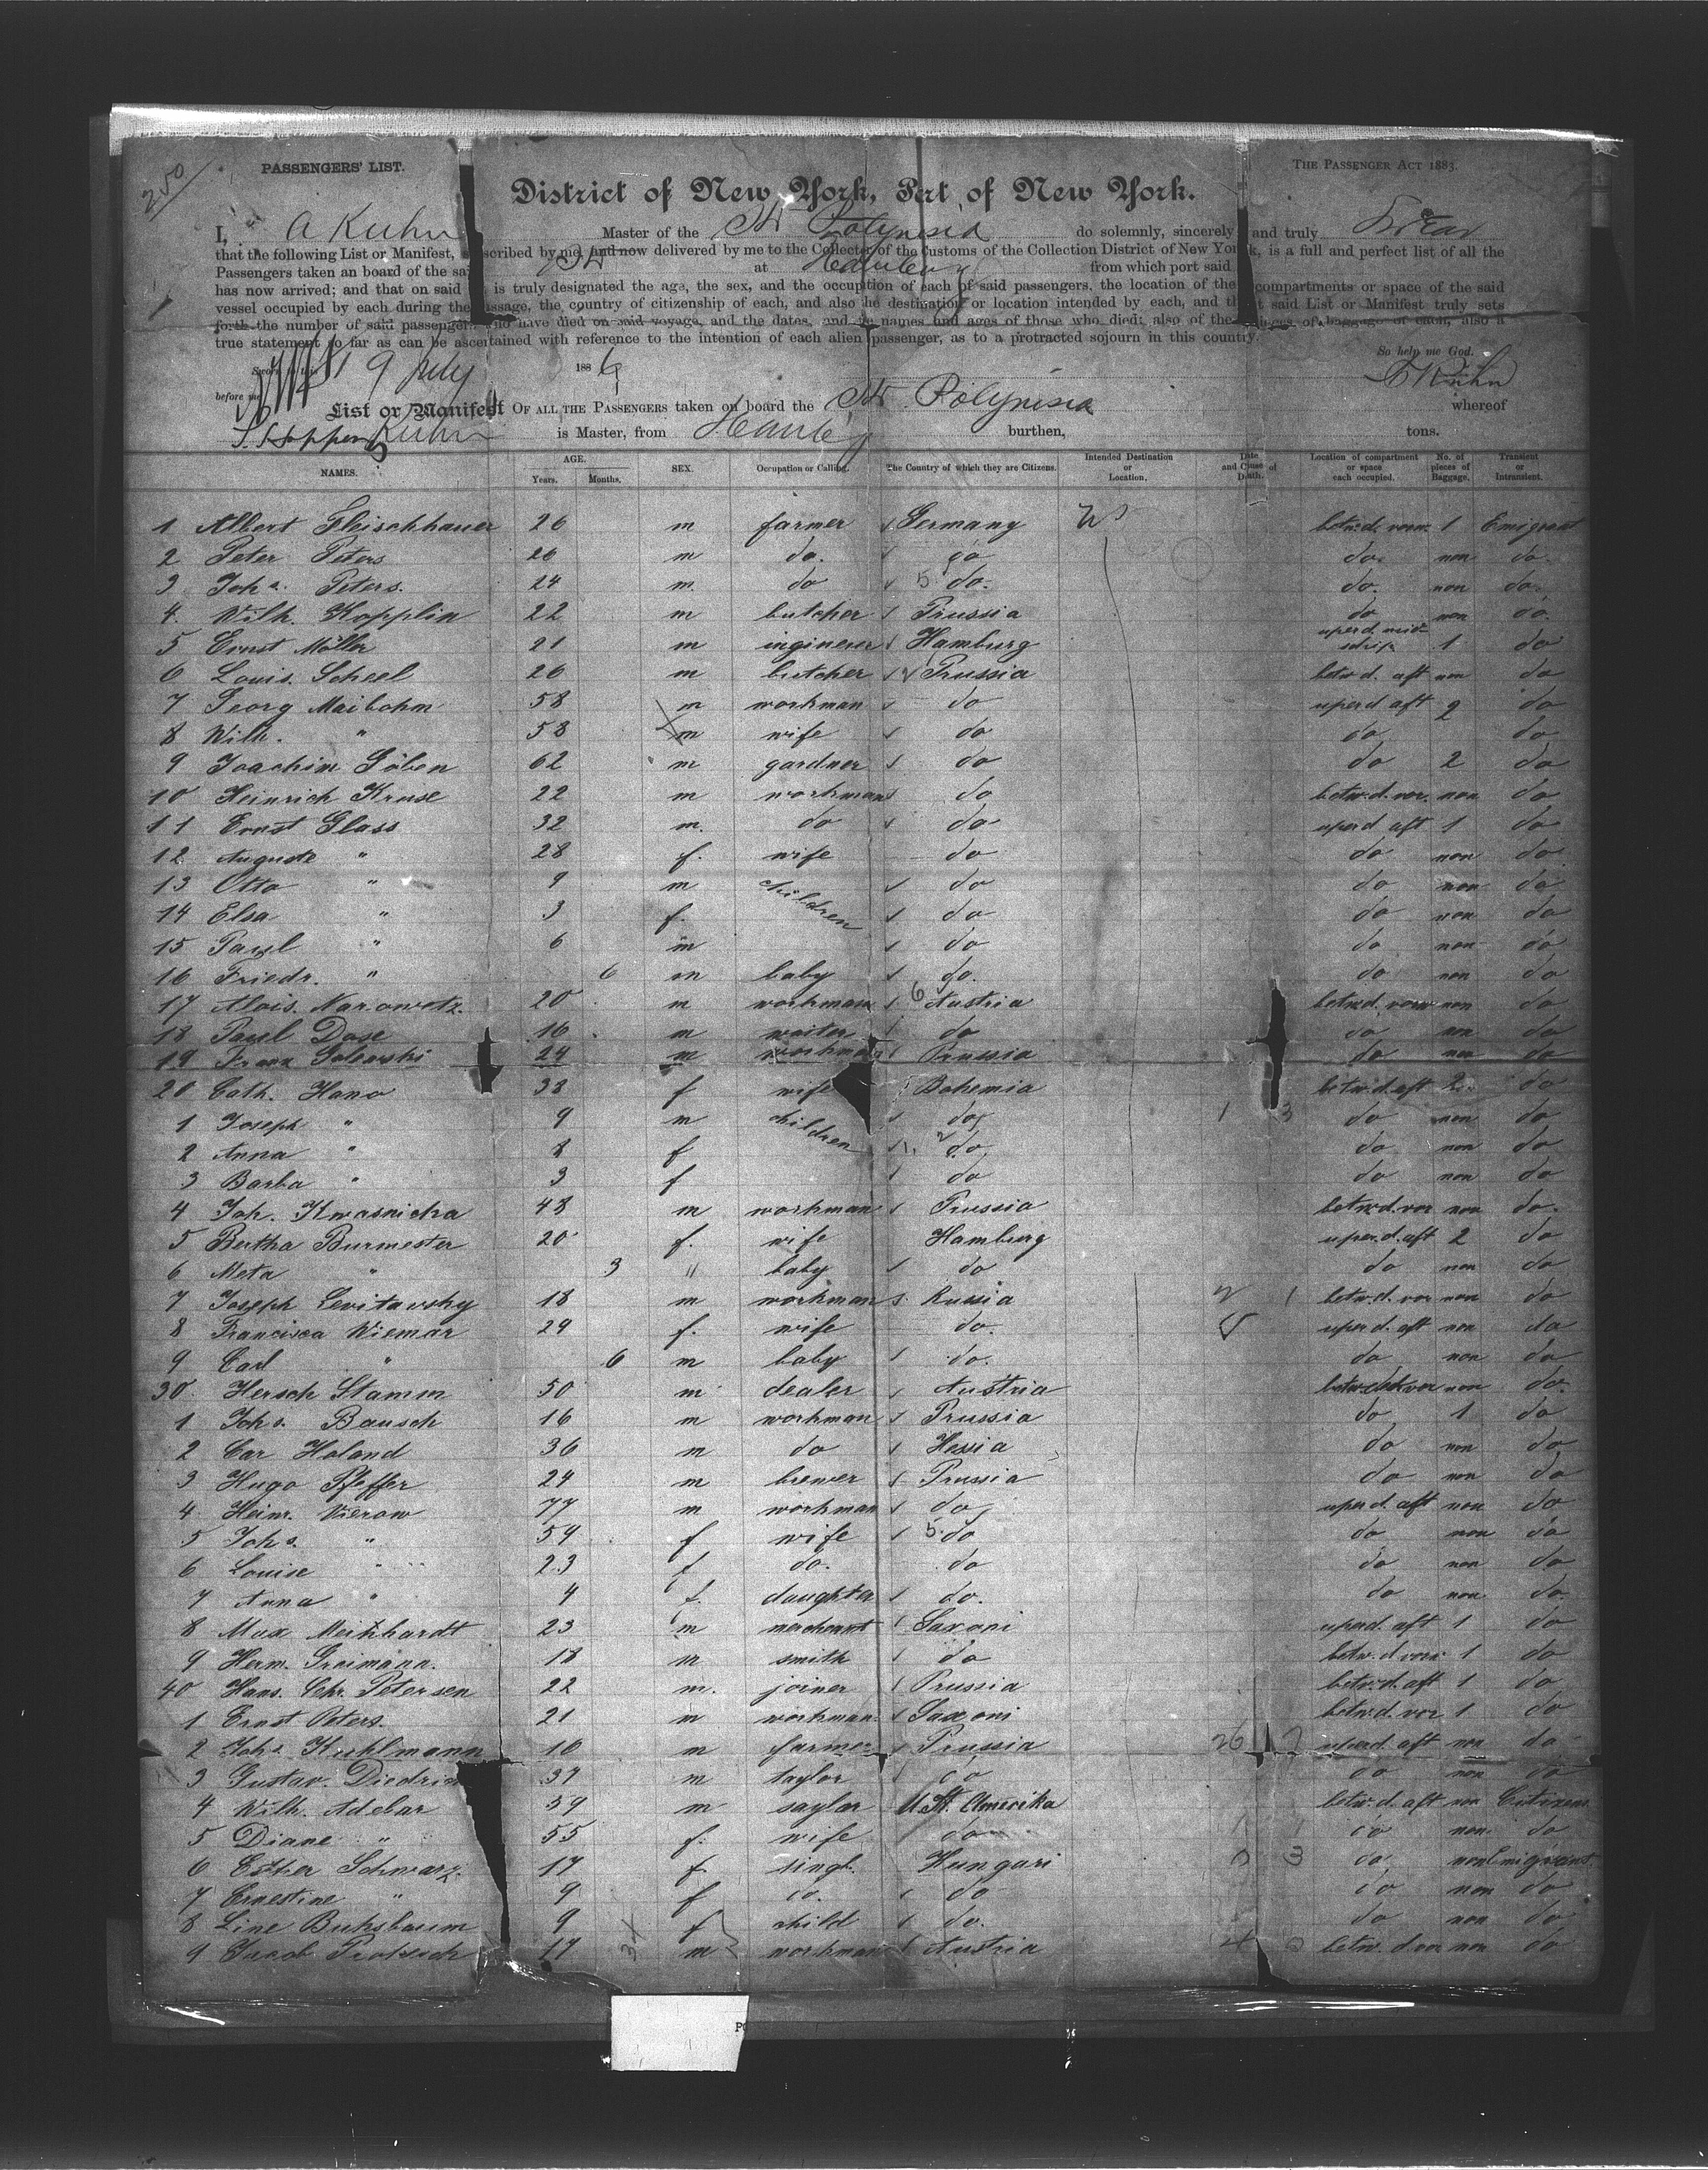 250
PASSENGERS' LIST.
THE PASSENGER ACT 1883.
District of New York, Port of New York.
I, A Kuhn Master of the Str Polynesia do solemnly, sincerely and truly Swear
that the following List or Manifest, subscribed by me, and now delivered by me to the Collector of the Customs of the Collection District of New York, is a full and perfect list of all the
Passengers taken an board of the said Str at Hamburg from which port said
has now arrived; and that on said list is truly designated the age, the sex, and the occupation of each of said passengers, the location of the compartments or space of the said
vessel occupied by each during the passage, the country of citizenship of each, and also the destination or location intended by each, and that said List or Manifest truly sets
forth the number of said passengers who have died on said voyage, and the dates, and names and ages of those who died; also of the pieces of baggage of each, also a
true statement so far as can be ascertained with reference to the intention of each alien passenger, as to a protracted sojourn in this country.
So help me God.
Sworn 19 July 1886
A Kuhn
before me
List or Manifest OF ALL THE PASSENGERS taken on board the Str Polynesia whereof
Kuhn is Master, from Hamburg burthen, tons.
NAMES. AGE. Years. Months. SEX. Occupation or Calling. The Country of which they are Citizens. Intended Destination or Location. Date and Cause of Death. Location of compartment or space each occupied. No. of pieces of Baggage. Transient or Intransient.
1 Albert Fleischhauer 26 m farmer Germany betwd. vorn 1 Emigrant
2 Peter Peters 26 m do. do do. non do.
3 Johs. Peters. 24 m. do 5 do. do. non do.
4. Wilh. Kopplin 22 m butcher Prussia do non do.
5 Ernst Möller 21 m inginerer Hamburg uperd. 1 do
6 Louis. Scheel 26 m butcher Prussia betwd. aft non do
7 Georg Maibohm 58 m workman do uperd aft 2 do
8 Wilh. " 58 m wife do do do
9 Joachim Söben 62 m gardner do do 2 do
10 Heinrich Kruse 22 m workman do betw.d. vor. non do
11 Ernst Glass 32 m. do do uperd aft 1 do
12 Auguste " 28 f. wife do do non do
13 Otto " 9 m children do do non do
14 Elsa " 3 f. do do non do
15 Paul " 6 m do do non do
16 Friedr. " 6 m baby do. do non do
17 Alois. Narowetz. 20 m workman 6 Austria betw.d. vorn non do
18 Paul Dose 16 m waiter do do non do
19 Franz Salewski 24 m workman Prussia do non do
20 Cath. Hana 38 f wife Bohemia betw.d. aft 2 do
1 Joseph " 9 m children do 1 3 do non do
2 Anna " 8 f do do non do
3 Barba " 3 f do do non do
4 Joh. Kwasnicka 48 m workman Prussia betw.d. vor non do.
5 Bertha Burmester 20 f. wife Hamburg uper.d. aft 2 do
6 Meta " 3 " baby do do non do
7 Joseph Levitavsky 18 m workman Russia 1 betw.d. vor non do
8 Francisca Wiemar 29 f. wife do. uperd. aft non do
9 Carl " 6 m baby do. do non do
30. Hersch Stamm 50 m dealer Austria non do.
1 Johs. Bausch 16 m workman Prussia do 1 do
2 Car Holand 36 m do Hessia do non do
3 Hugo Pfeffer 24 m brewer Prussia do non do
4. Heinr. Vierow 77 m workman do uperd. aft non do
5 Johs. " 59 f wife 5 do do non do
6 Louise " 23 f do. do do non do
7 Anna " 4 f. daughter do. do non do.
8 Max Meinhardt 23 m merchant Saxoni uperd. aft 1 do
9 Herm. Greimann. 18 m smith do betw.d vorn 1 do
40 Hans. Chr. Petersen 22 m. joiner Prussia betw.d. aft 1 do
1 Ernst Peters. 21 m workman. Saxoni betw.d. vor 1 do
2 Johs. Kuhlmann 16 m farmer Prussia 26 7 uperd. aft non do
3 Gustav. 37 m taylor do do non do
4 Wilh. Adebar 59 m saylor U. St. Amerika betw.d. aft non Citizens
5 Diane " 55 f. wife do 1 1 do non. do
6 Esther Schwarz. 17 f singl. Hungari 3 do non Emigrant.
7 Ernestine " 9 f do. do do non do
8 Line Buksbaum 9 f child do. do non do
9 Jacob 17 m workman Austria betw. d vor non do